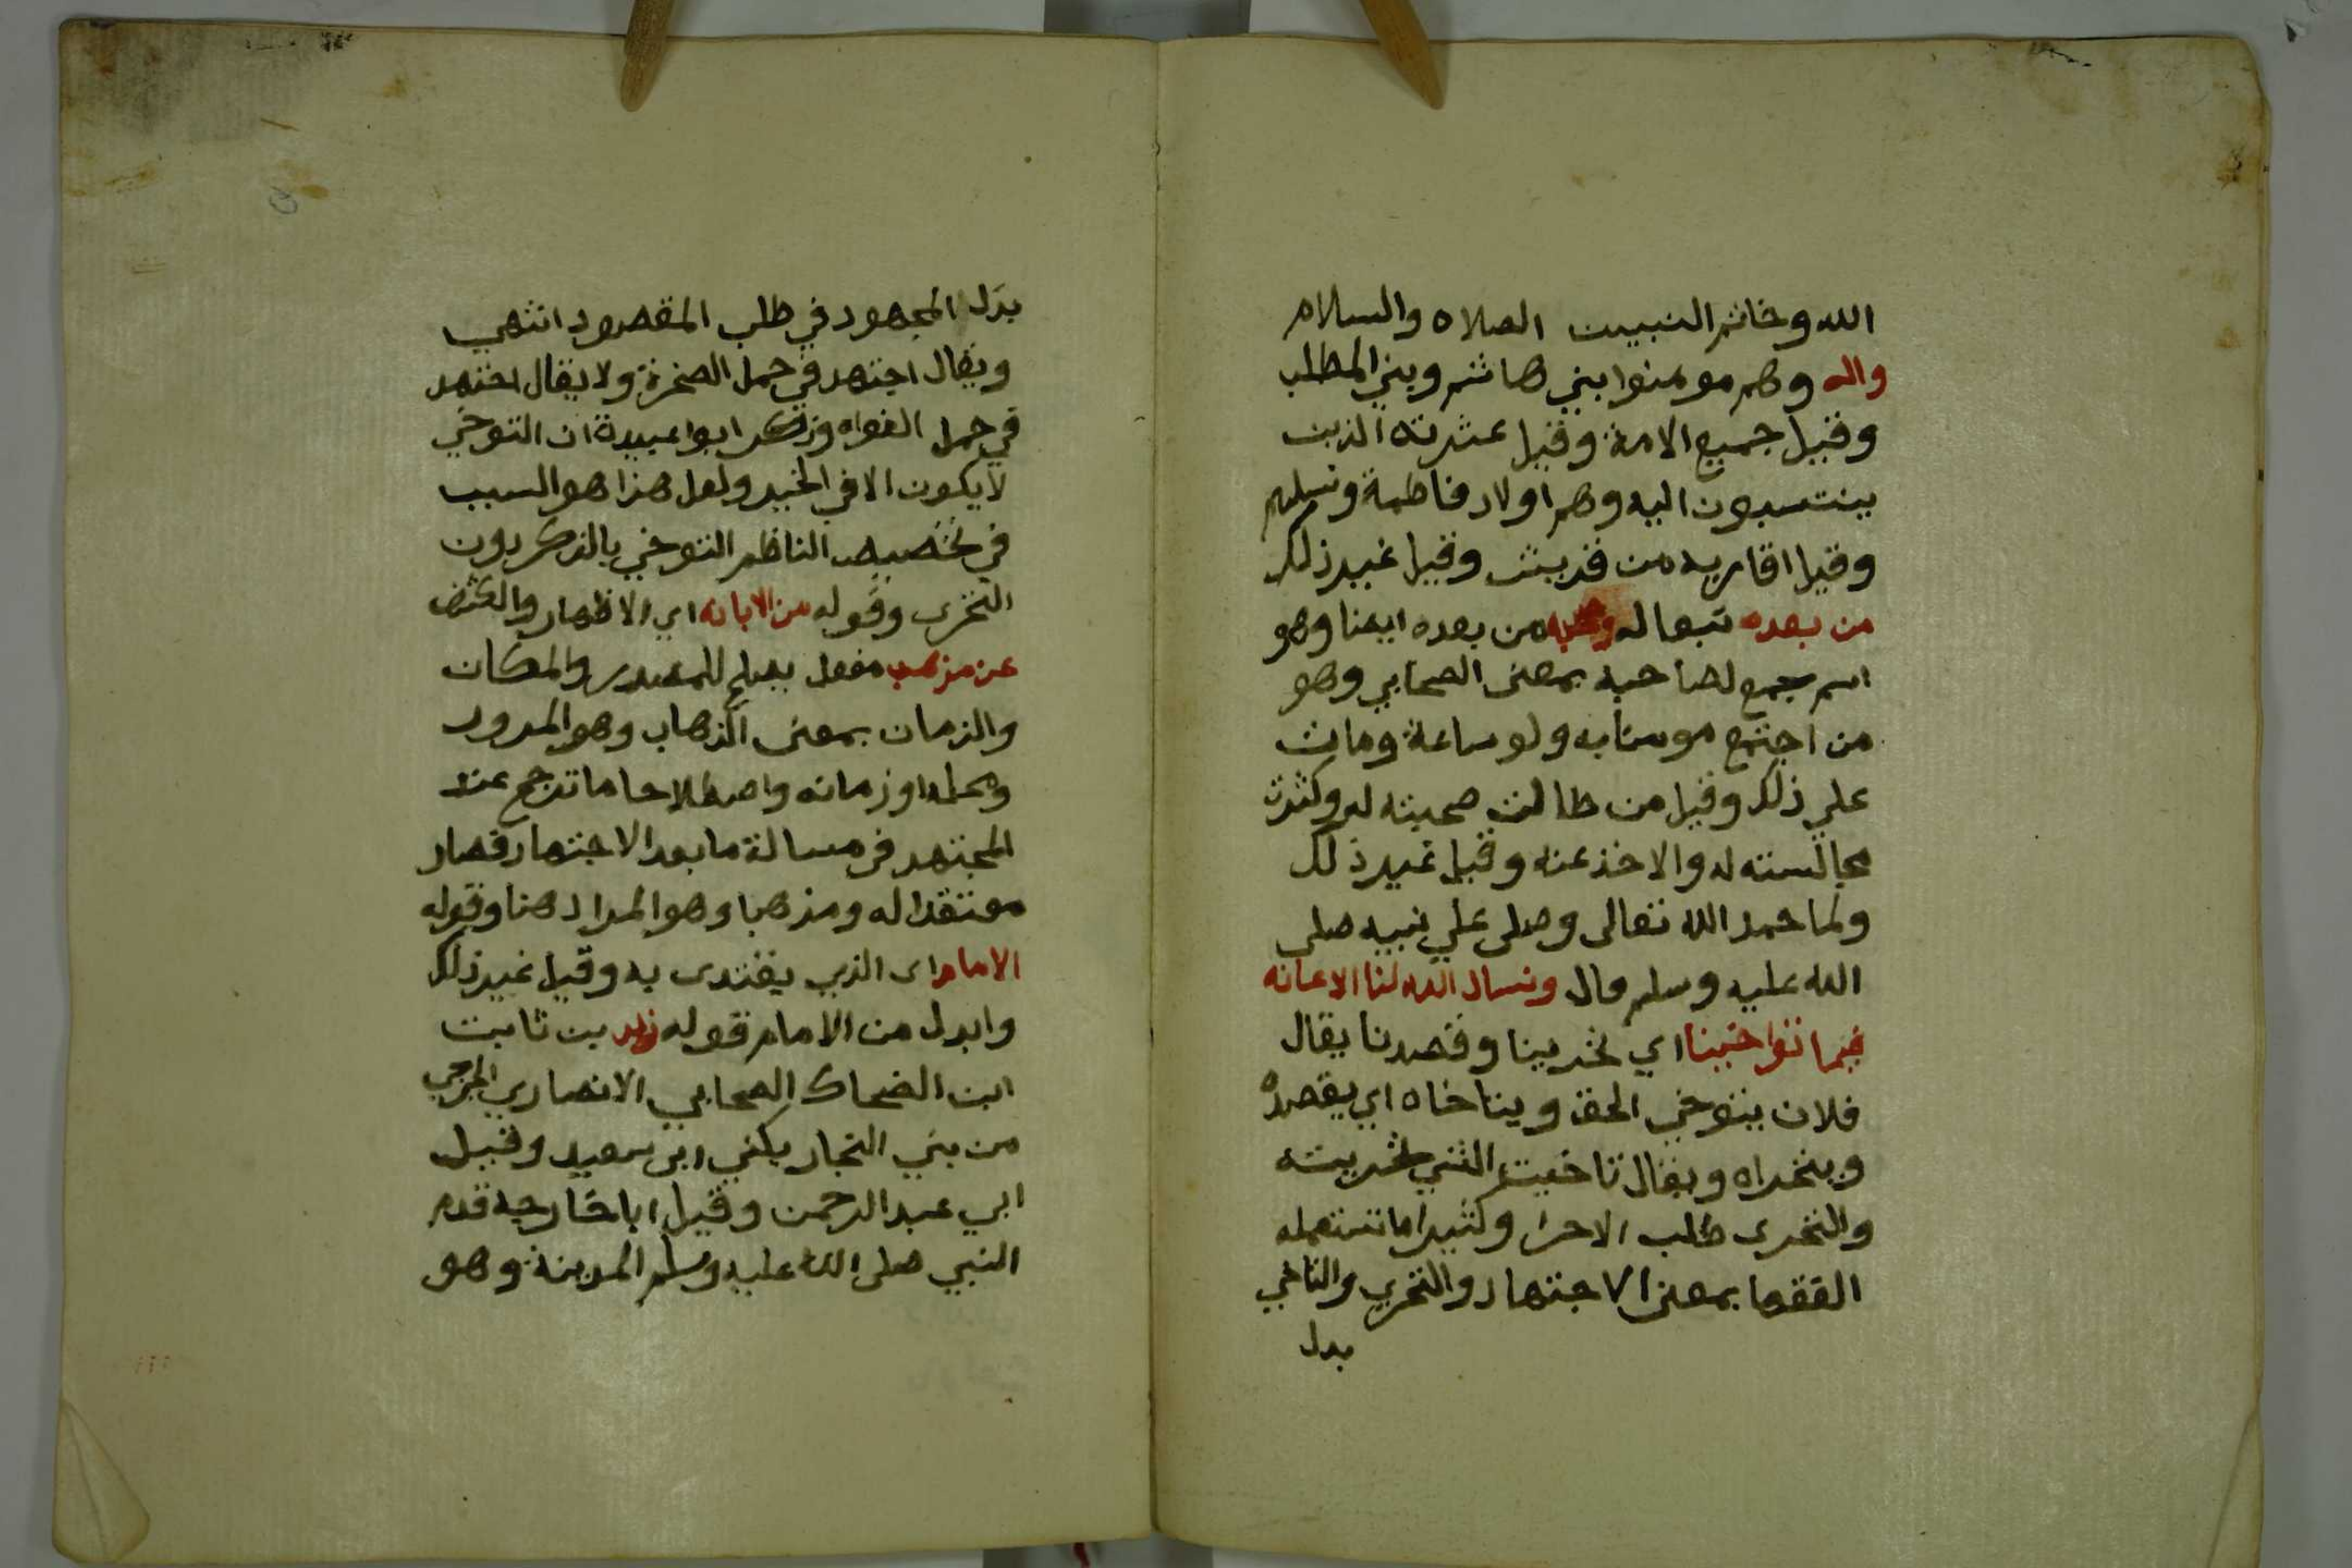 الله وخاتم النبيين الصلاه والسلام
واله وهم مومنوا بني هاشم وبني المطلب
وقيل جميع الامة وقيل عشرته الذين
ينتسبون اليه وهم اولاد فاطمة ونسلهم
وقيل اقاربه من قريش وقيل غير ذلك
من بعده تبعا له وصحبه من بعده ايضا وهو
اسم جمع لصاحبه بمعنى الصحابي وهو
من اجتمع مومنا به ولو ساعة ومات
علي ذلك وقيل من طالت صحبته له وكثرت
مجالسته له والاخذ عنه وقيل غير ذلك
ولما حمد الله تعالى وصلى علي نبيه صلى
الله عليه وسلم قال ونسال الله لنا الاعانه
فيما تواخينا اي تحرينا وقصدنا يقال
فلان يتوخي الحق ويتاخاه اي يقصده
ويتحراه ويقال تاخيت الشي تحريته
والتحرى طلب الاحرا وكثيرا ما تستعمله
الفقها بمعنى الاجتهاد والتحري والتاخي
بدل
بذل المجهود في طلب المقصود انتهي
ويقال اجتهد في حمل الصخرة ولا يقال اجتهد
في حمل النواه وذكر ابوا عبيدة ان التوخي
لا يكون الا في الخير ولعل هذا هو السبب
في تخصيص الناظم التوخي بالذكر دون
التحرى وقوله من الابانه اي الاظهار والكشف
عن مذهب مفعل يصلح للمصدر والمكان
والزمان بمعنى الذهاب وهو المرور
ومحله او زمانه واصطلاحا ما ترجح عند
المجتهد في مسالة ما بعد الاجتهاد فصار
معتقدا له ومذهبا وهو المراد هنا وقوله
الامام اى الذي يقتدى به وقيل غير ذلك
وابدل من الامام قوله زيد بن ثابت
ابن الضحاك الصحابي الانصاري الخزرجي
من بني النجار يكني ابى سعيد وقيل
ابي عبد الرحمن وقيل ابا خارجه قدم
النبي صلى الله عليه وسلم المدينة وهو